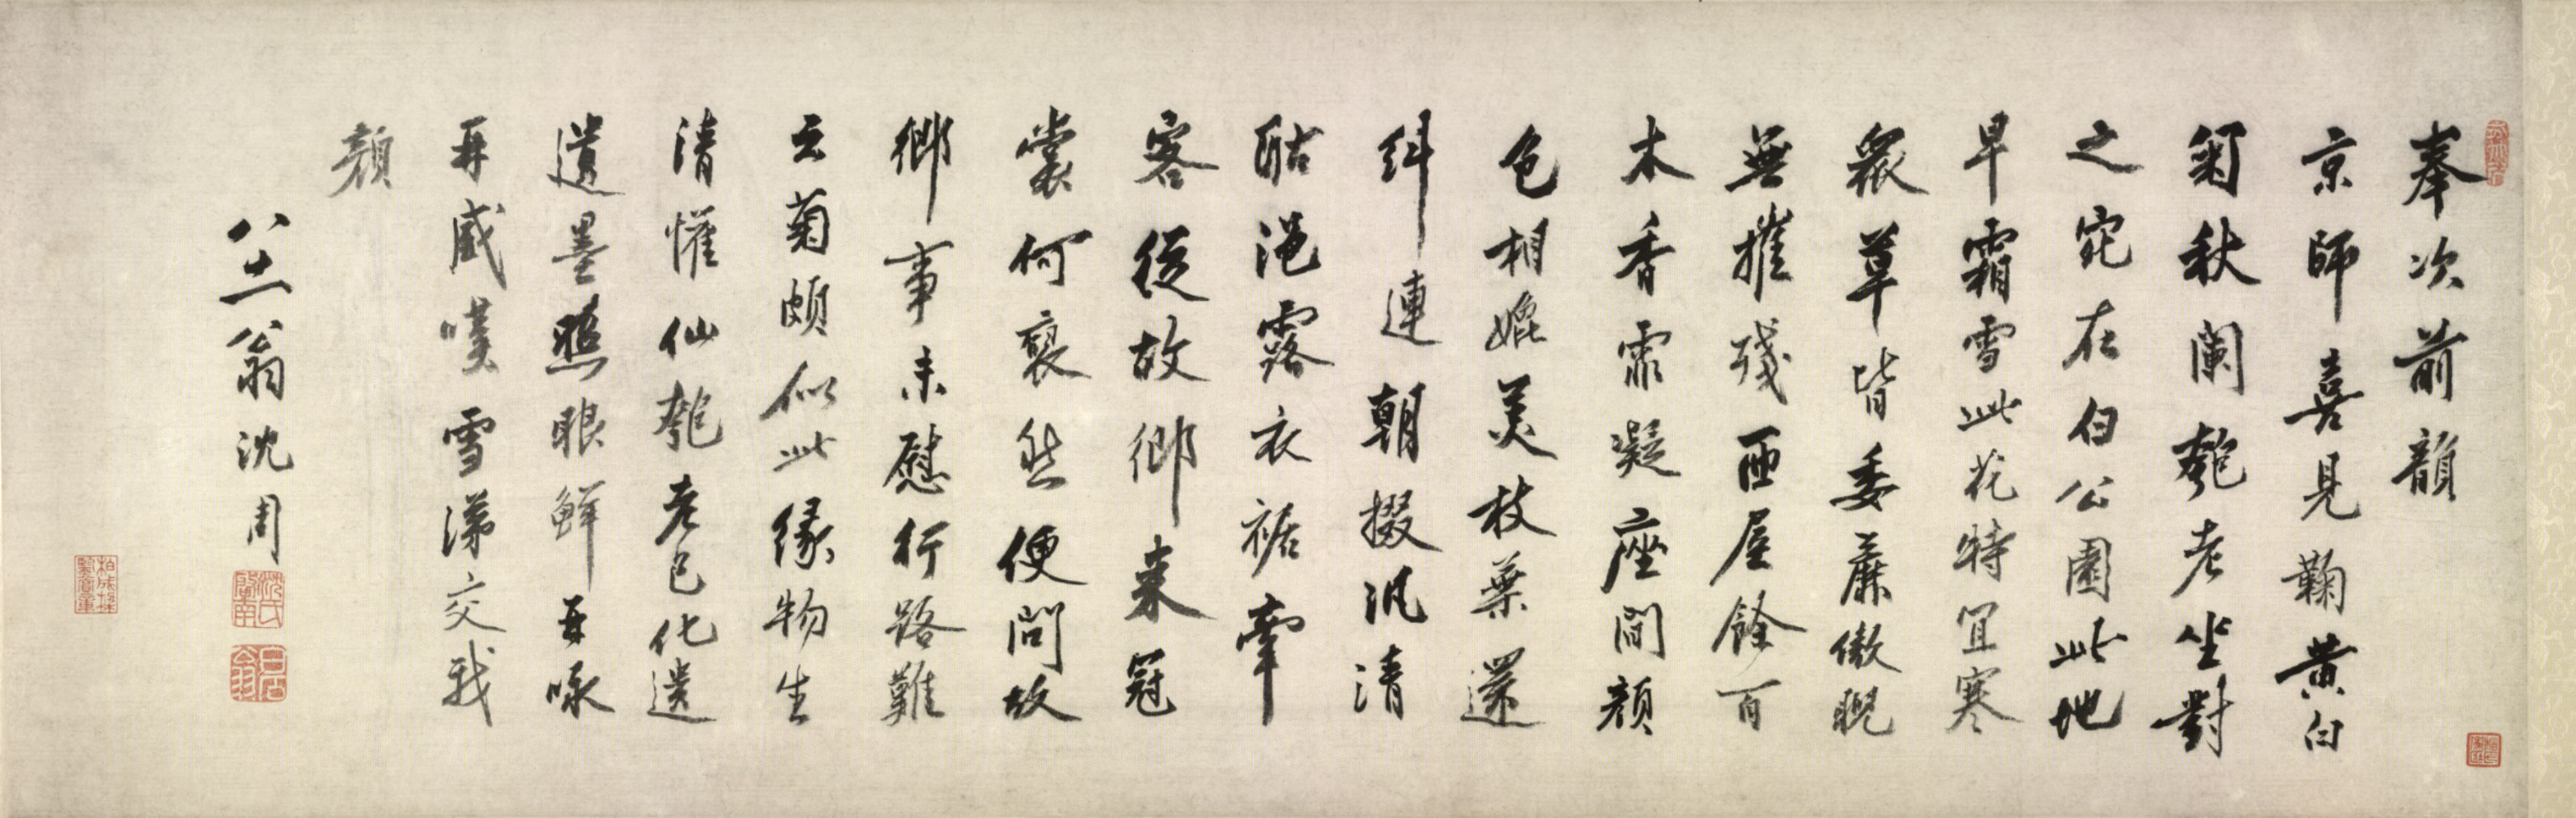 奉次前韻
京師喜見鞠黃白
菊秋闌匏老坐對
之宛在白公園此地
早霜雪此花特宜寒
衆草皆委靡傲睨
無摧殘西屋餘百
本香霏凝座間顏
色相媲美枝葉還
糾連朝掇汎清
酤浥露衣裾牽
客從故鄉來冠
裳何褎然便問故
鄉事未慰行路難
云菊頗似此緣物生
清懽仙匏老已化遺
遺墨照眼鮮再咏
再感嘆雪涕交我
顏
八十一翁沈周
沈氏啟南
白石翁